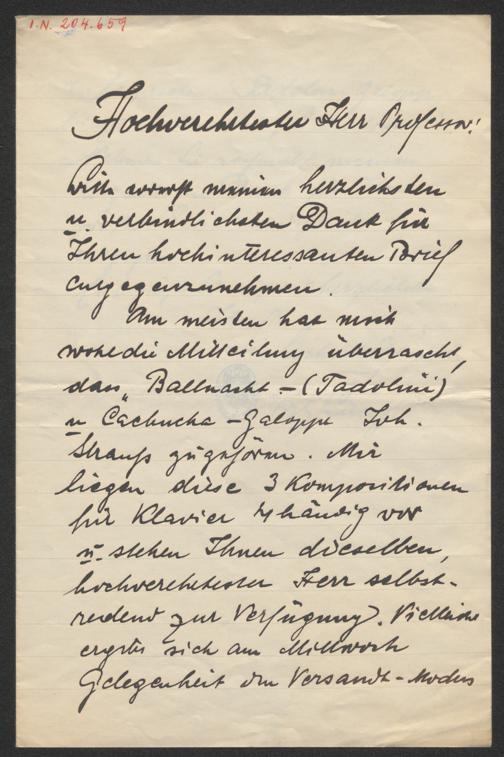 I.N. 204.659
Hochverehrtester Herr Professor!
Bitte vorerst meinen herzlichsten
u. verbindlichsten Dank für
Ihren hochinteressanten Brief
entgegenzunehmen.
Am meisten hat mich
wohl die Mitteilung überrascht,
dass „Ballnacht - (Tadolini)
u Cachucha - Galoppe Joh.
Strauss zugehören. Mir
liegen diese 3 Kompositionen
für Klavier 4händig vor
u. stehen Ihnen dieselben,
hochverehrtester Herr selbst-
redend zur Verfügung. Vielleicht
ergibt sich am Mittwoch
Gelegenheit den Versandt-Modus